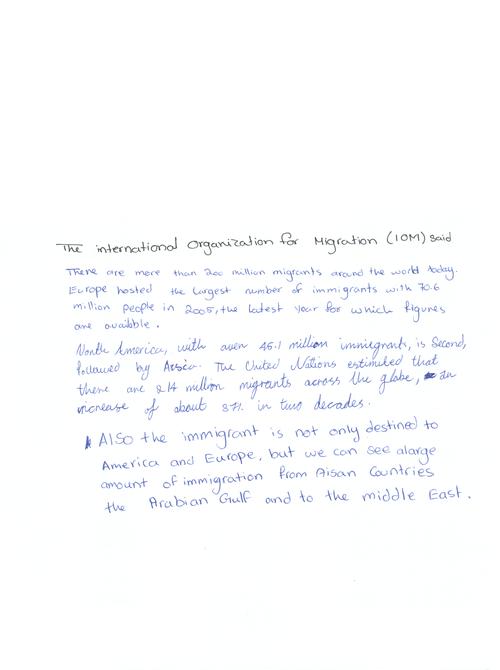 The international Organization for Migration (IOM) said
There are more than 200 million migrants around the world today.
Europe hosted the largest number of immigrants with 70.6
million people in 2005, the latest year for which figures
are avaibble.
North America, with over 45.1 million immigrants, is Second,
followed by Assia. The United Nations estimated that
there are 214 million migrants across the globe, an
increase of about 37% in two decades.
Also the immigrant is not only destined to
America and Europe, but we can see alarge
amount of immigration from Aisan Countries
the Arabian Gulf and to the middle East.